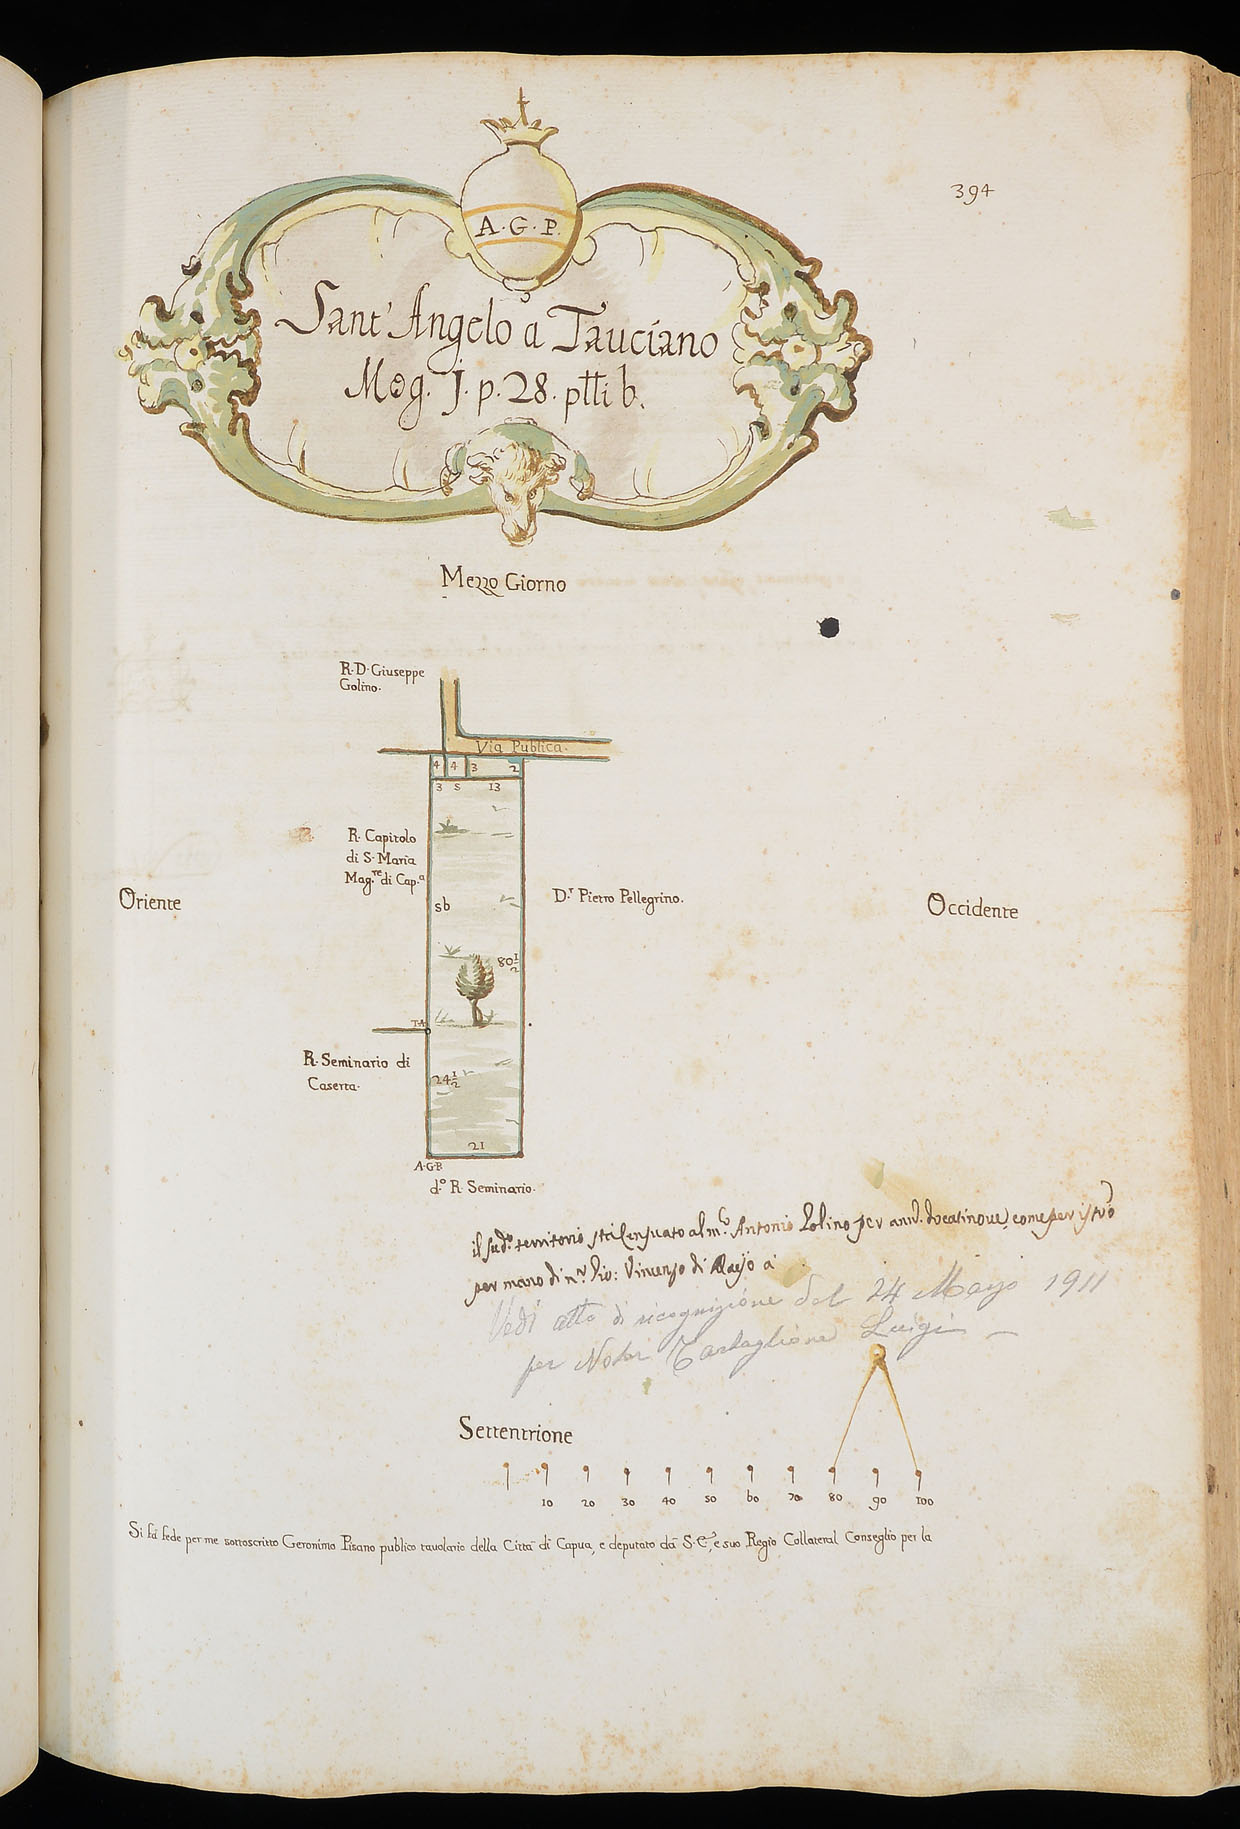 394
A. G. P.
Sant' Angelo a Tauciano
Mog. J. p. 28. ptti b.
Mezzo Giorno
R. D. Giuseppe
Golino.
Via Publica.
4 4 3 2
3 5 13
R. Capitolo
di S. Maria
Mag.re di Cap.a
Oriente
56
Dr. Pietro Pellegrino.
Occidente
80 1/2
T.A.
R. Seminario di
Caserta.
24 1/2
21
A.G.P.
do. R. Seminario.
il sud.o territorio sta Censuato al m.co Antonio Golino per ann. docati nove, come per
per mano di n.r Vincenzo di
Vedi atto di ricognizione del 24 Mayo 1911
per Notar Tartaglione Luigi
Settentrione
10 20 30 40 50 60 70 80 90 100
Si fà fede per me sottoscritto Geronimo Pisano publico tavolario della Città di Capua, e deputato dà S. E., e suo Regio Collateral Conseglio per la